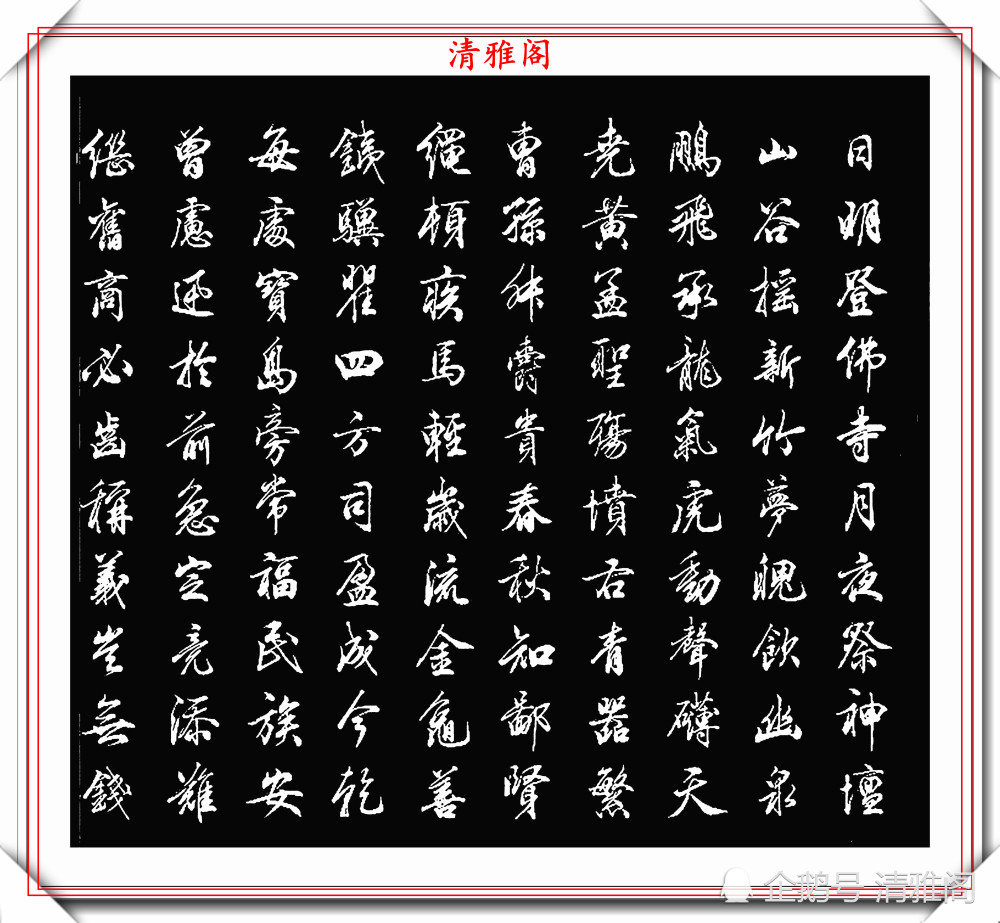 清雅阁
日明登佛寺月夜祭神壇
山谷摇新竹夢愧飲幽泉
鵬飛承龍氣虎動聲礴天
堯黃孟聖殤墳君青器繁
曹孫舛爵貴春秋知鄙賢
繩頓疾馬輕歲流金龜善
鐵驥瞿四方司盈成今乾
每處寶島旁常福民族安
曾慮迅於前急定竟添難
繼舊商必齒稱義豈無錢
企鹅号 清雅阁